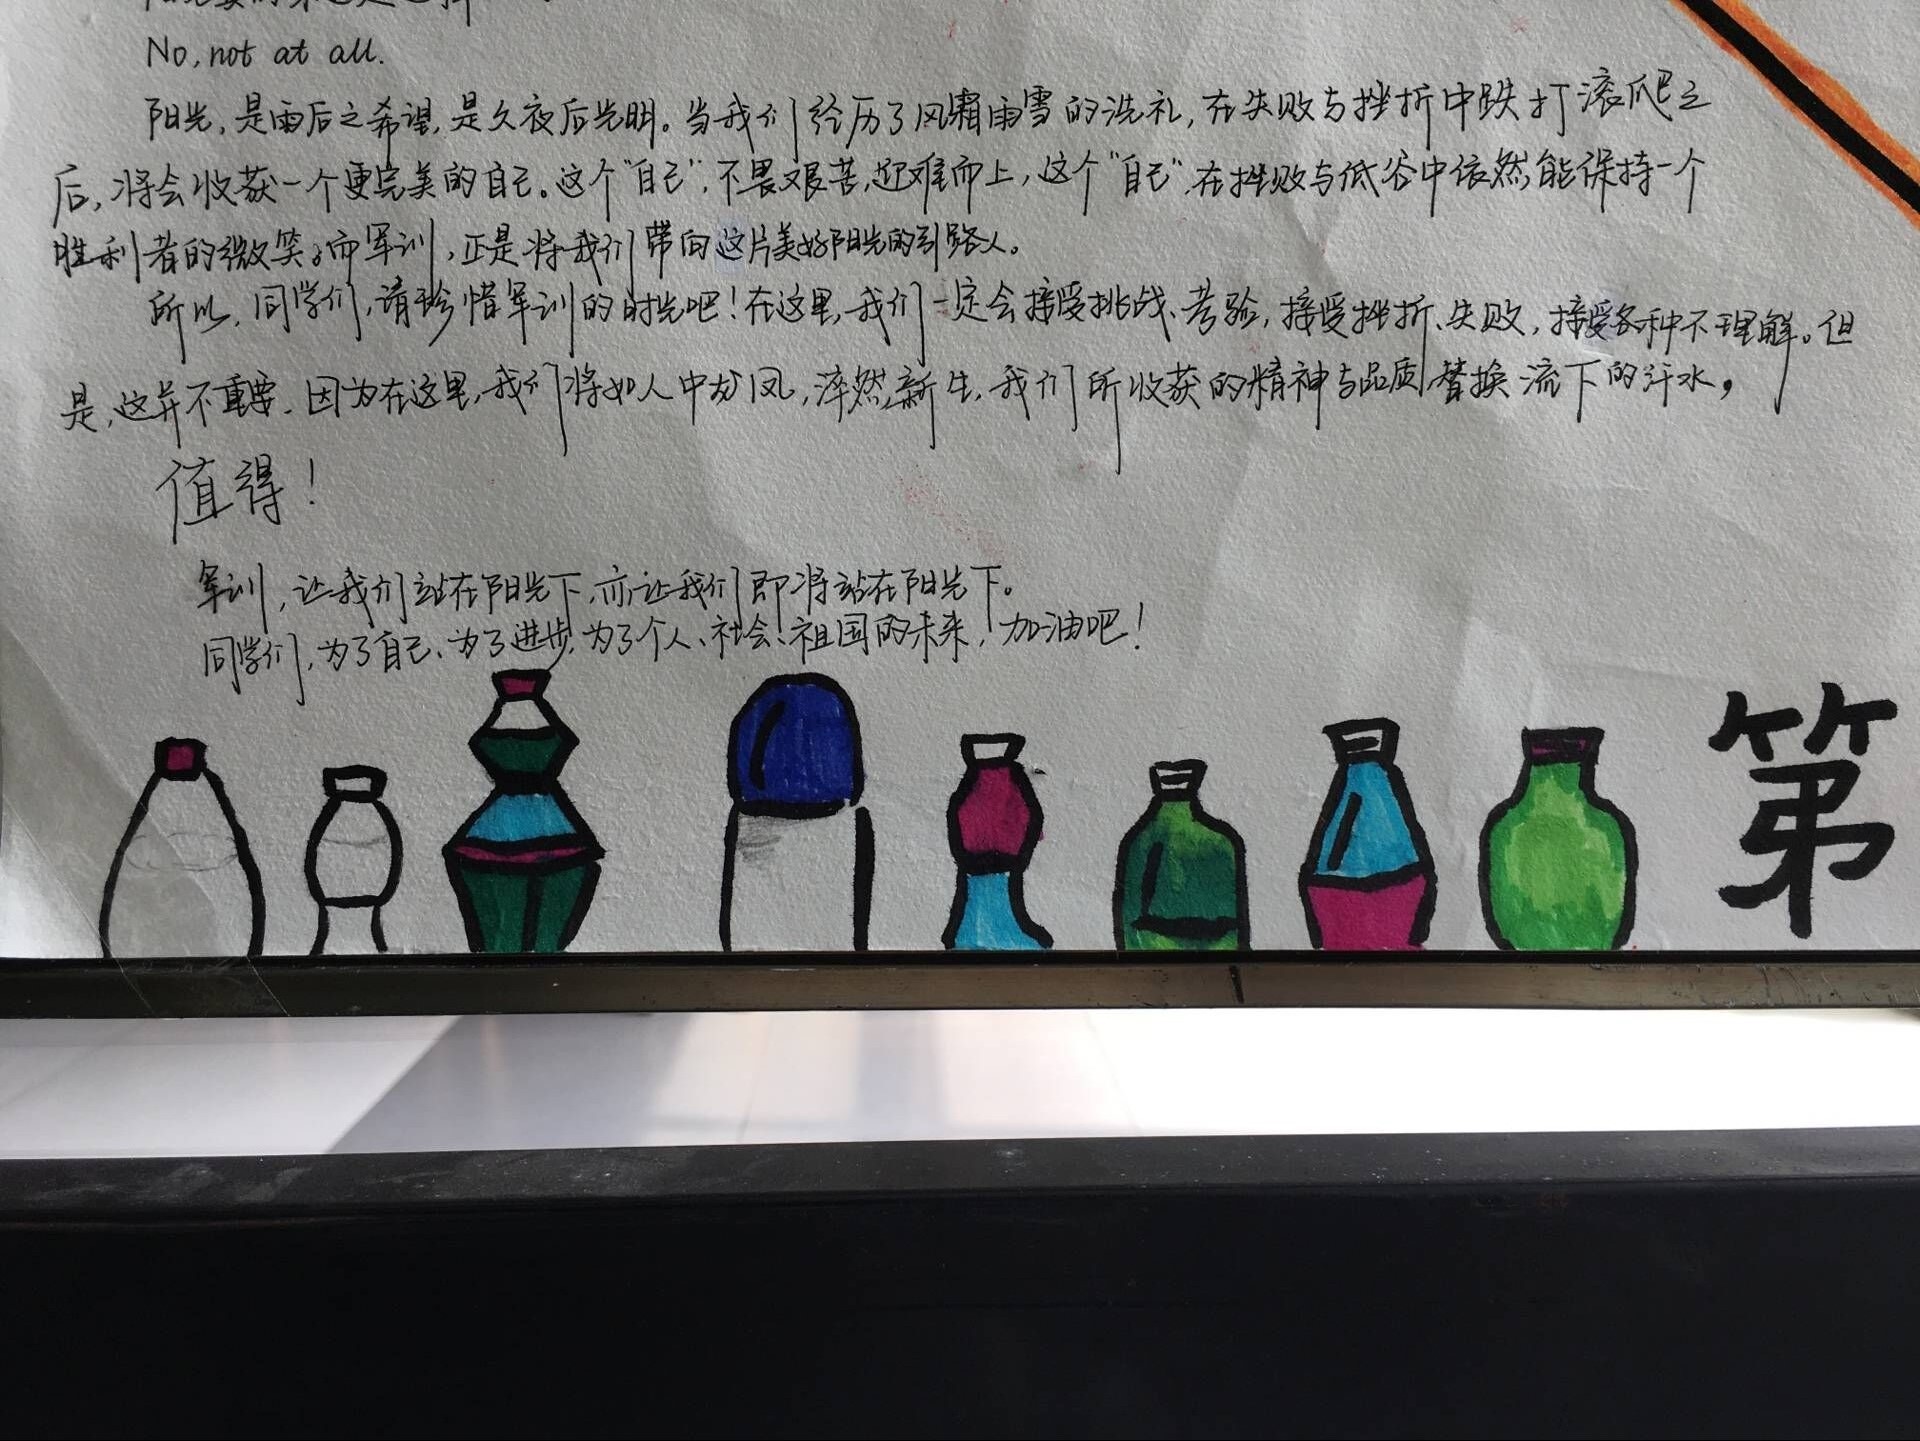 No, not at all.
阳光，是雨后之希望，是久夜后光明。当我们经历了风霜雨雪的洗礼，在失败与挫折中跌打滚爬之
后，将会收获一个更完美的自己。这个“自己”，不畏艰苦，迎难而上，这个“自己”，在挫败与低谷中依然能保持一个
胜利者的微笑。而军训，正是将我们带向这片美好阳光的引路人。
所以，同学们，请珍惜军训的时光吧！在这里，我们一定会接受挑战、考验，接受挫折、失败，接受各种不理解。但
是，这并不重要，因为在这里，我们将如人中龙凤，淬然新生，我们所收获的精神与品质，替换流下的汗水，
值得！
军训，让我们站在阳光下，亦让我们即将站在阳光下。
同学们，为了自己、为了进步，为了个人、社会、祖国的未来，加油吧！
第